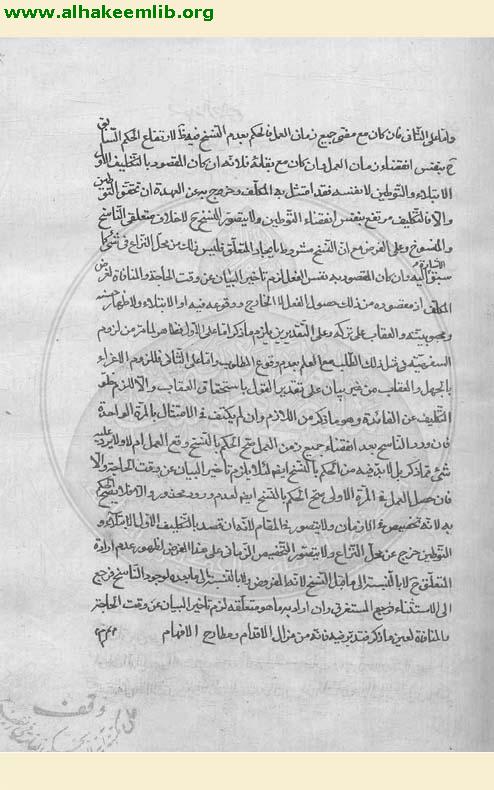 www.alhakeemlib.org
واما على الثانى فان كان مع مضى جميع زمان العمل فالحكم بعدم النسخ فيه لارتفاع الحكم
بنفس انقضاء زمان العمل وان كان مع بقائه فلانه ان كان المقصود بالتكليف
الابتلاء والتوطين لا نفسه فقد امتثل به المكلف وخرج عن العهدة ان تحقق
والا فالتكليف مرتفع بنفس انقضاء التوطين ولا يتصور النسخ ح لاختلاف متعلقى الناسخ
والمنسوخ وعلى الفرض مع ان النسخ مشروط بايجاد المتعلق فليس ذلك من محل النزاع فى شئ كما
سبق اليه وان كان المقصود به نفس الفعل لزم تاخير البيان عن وقت الحاجة والمنافاة لغرض
المكلف اذ مقصوده من ذلك حصول الفعل فى الخارج ووقوعه فيه او الابتلاء ولاظهار
ومحبوبيته والعقاب على تركه وعلى التقديرين يلزم ما ذكر اما على الاول فظاهر لما مر من لزوم
السفه فى مثل ذلك الطلب مع العلم بعدم وقوع المطلوب واما على الثانى فللزوم الاغراء
بالجهل والعقاب من غير بيان على تقدير القول باستحقاق العقاب والا لزم خلو
التكليف عن الفائدة وهو ما ذكر من اللازم وان لم يكتف فى الامتثال بالمرة الواحدة
فان ورد الناسخ بعد انقضاء جميع زمن العمل صح الحكم بالنسخ وقع العمل ام لا ولا يرد عليه
شئ مما ذكر بل لا بد فيه من الحكم بالنسخ ايضا لئلا يلزم تاخير البيان عن وقت الحاجة والا
فان حصل العمل فى المرة الاولى صح الحكم بالنسخ ايضا لعدم ورود محذور والا فلا يصح الحكم
به لانه تخصيص فى الازمان ولا يتصور فى المقام لانه ان قصد بالتكليف الاول الابتلاء و
التوطين خرج عن محل النزاع ولا يتصور التخصيص الزمانى على هذا الفرض لظهور عدم ارادة
المتعلق ح لا بالنسبة الى ما قبل النسخ لانه المفروض ولا بالنسبة الى ما بعده لوجود الناسخ فرجع
الى الاستثناء المستغرق وان اراد به ما هو متعلقه لزم تاخير البيان عن وقت الحاجة
بالمنافاة لعين ما ذكر فتدبر فيه فانه من مزال الاقدام ومطارح الافهام
وقف